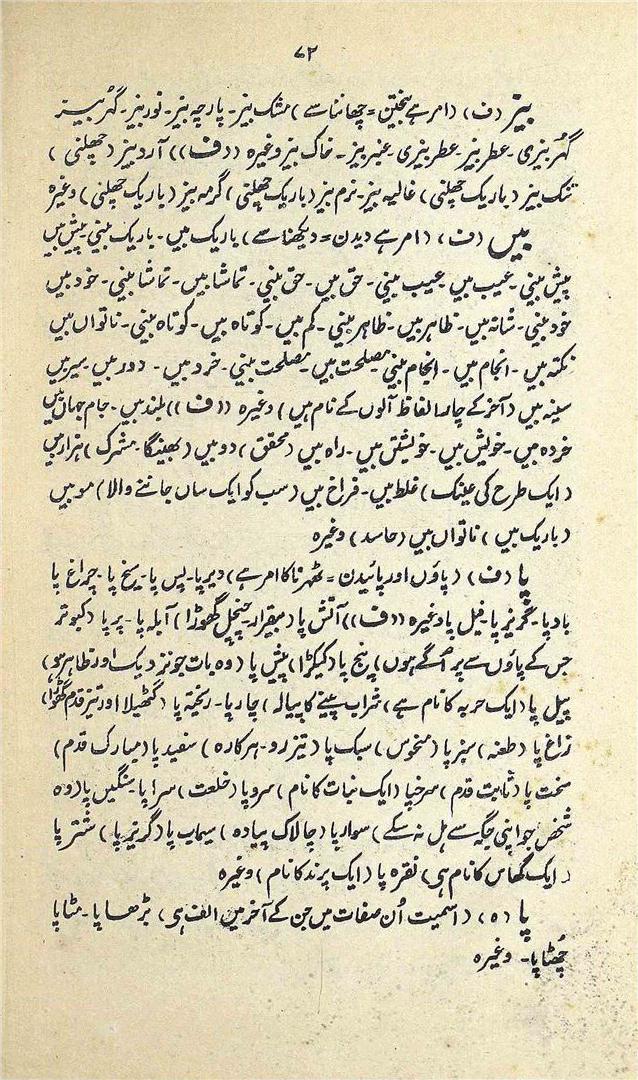 ۷۲
بیز (ف) (امر ہے بیختن = چھاننا سے) مشک بیز۔ پارچہ بیز۔ نور بیز۔ گہر بیز
گہر بیزی۔ عطر بیز۔ عطر بیزی۔ عنبر بیز۔ خاک بیز وغیرہ ((ف)) آرد بیز (چھلنی)
تنک بیز (باریک چھلنی) غالیہ بیز۔ نرم بیز (باریک چھلنی) گرمہ بیز (باریک چھلنی) وغیرہ
بیں (ف) (امر ہے دیدن = دیکھنا سے) باریک بیں۔ باریک بینی۔ پیش بیں
پیش بینی۔ عیب بیں۔ عیب بینی۔ حق بیں۔ حق بینی۔ تماشا بیں۔ تماشا بینی۔ خود بیں
خود بینی۔ شانہ بیں۔ ظاہر بیں۔ ظاہر بینی۔ کم بیں۔ کوتاہ بیں۔ کوتاہ بینی۔ ناتواں بیں
نکتہ بیں۔ انجام بیں۔ انجام بینی۔ مصلحت بیں۔ مصلحت بینی۔ خرد بیں۔ دور بیں۔ سیر بیں
سینہ بیں (آخر کے چار الفاظ آلوں کے نام ہیں) وغیرہ ((ف)) بلند بیں۔ جام جہاں بیں
خردہ بیں۔ خویش بیں۔ خویشتن بیں۔ راہ بیں (محقق) دو بیں (بھینگا۔ مشرک) ہزار بیں
(ایک طرح کی عینک) غلط بیں۔ فراخ بیں (سب کو ایک ساں جاننے والا) مو بیں
(باریک بیں) ناتواں بیں (حاسد) وغیرہ
پا (ف) (پاؤں اور پائیدن = ٹھہرنا کا امر ہے) دیر پا۔ پس پا۔ سیخ پا۔ چراغ پا
باد پا۔ گریز پا۔ فیل پا وغیرہ ((ف)) آتش پا (بیقرار۔ چنچل گھوڑا) آبلہ پا۔ پر پا (کبوتر
جس کے پاؤں سے پر اُگے ہوں) پنج پا (کیکڑا) پیش پا (وہ بات جو نزدیک اور ظاہر ہو)
پیل پا (ایک حربہ کا نام ہے) شراب پینے کا پیالہ) چار پا۔ ریختہ پا (گٹھیلا اور تیز قدم گھوڑا)
زاغ پا (طعنہ) سبز پا (منحوس) سبک پا (تیز رو۔ ہرکارہ) سفید پا (مبارک قدم)
سخت پا (ثابت قدم) سرخپا (ایک نبات کا نام) سرو پا (خلعت) سراپا۔ سنگیں پا (وہ
شخص جو اپنی جگہ سے ہل نہ سکے) سوار پا (چالاک پیادہ) سیماب پا (گریز پا) شتر پا
(ایک گھاس کا نام ہی) نقرہ پا (ایک پرند کا نام) وغیرہ
پا (ہ) (اسمیت اُن صفات میں جن کے آخر میں الف ہی) بڑھاپا۔ مٹاپا
چُھٹاپا۔ وغیرہ